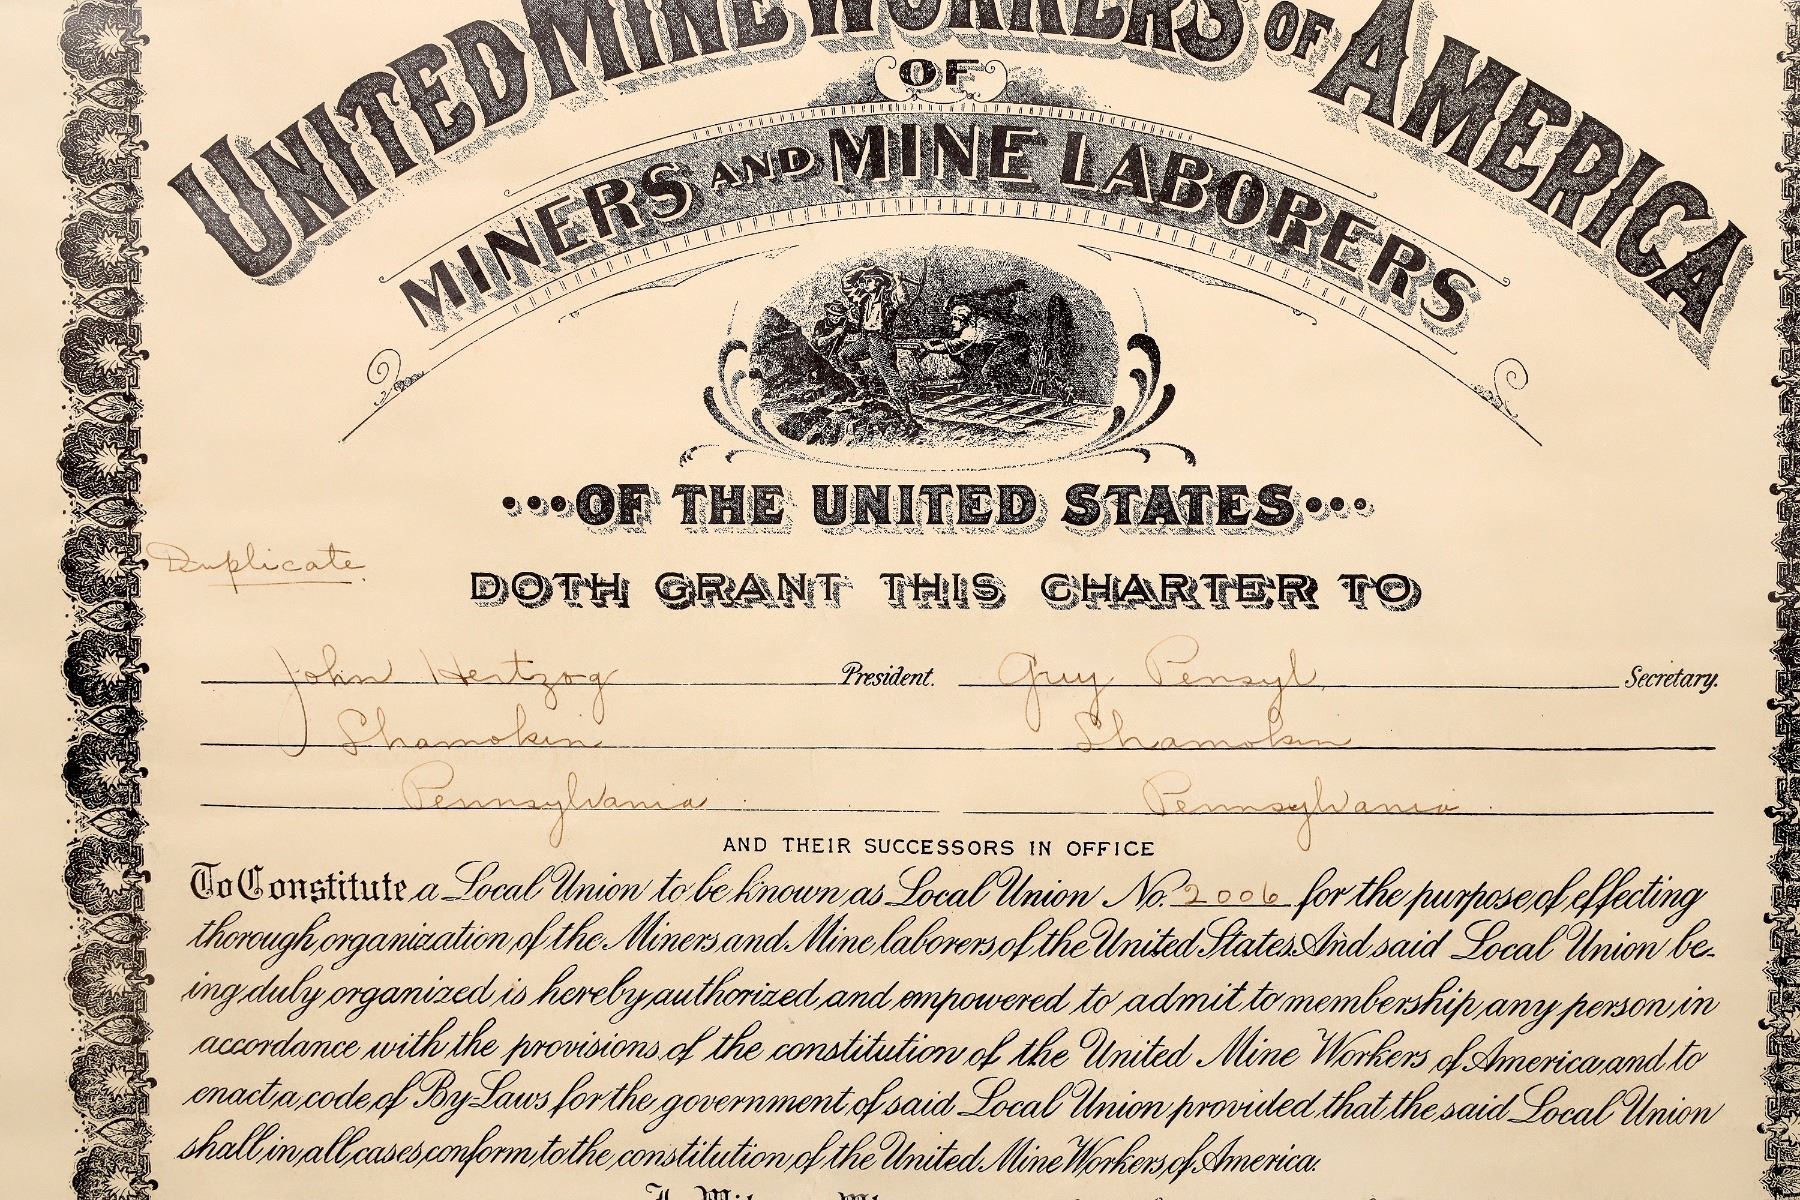 UNITED MINE WORKERS OF AMERICA
OF
MINERS AND MINE LABORERS
•••OF THE UNITED STATES•••
Duplicate.
DOTH GRANT THIS CHARTER TO
John Hertzog President. Guy Pensyl, Secretary.
Shamokin Shamokin
Pennsylvania. Pennsylvania.
AND THEIR SUCCESSORS IN OFFICE
To Constitute a Local Union to be known as Local Union No. 2006 for the purpose of effecting
thorough organization of the Miners and Mine laborers of the United States. And said Local Union be-
ing duly organized is hereby authorized and empowered to admit to membership any person in
accordance with the provisions of the constitution of the United Mine Workers of America and to
enact a code of By-Laws for the government of said Local Union provided that the said Local Union
shall in all cases conform to the constitution of the United Mine Workers of America.